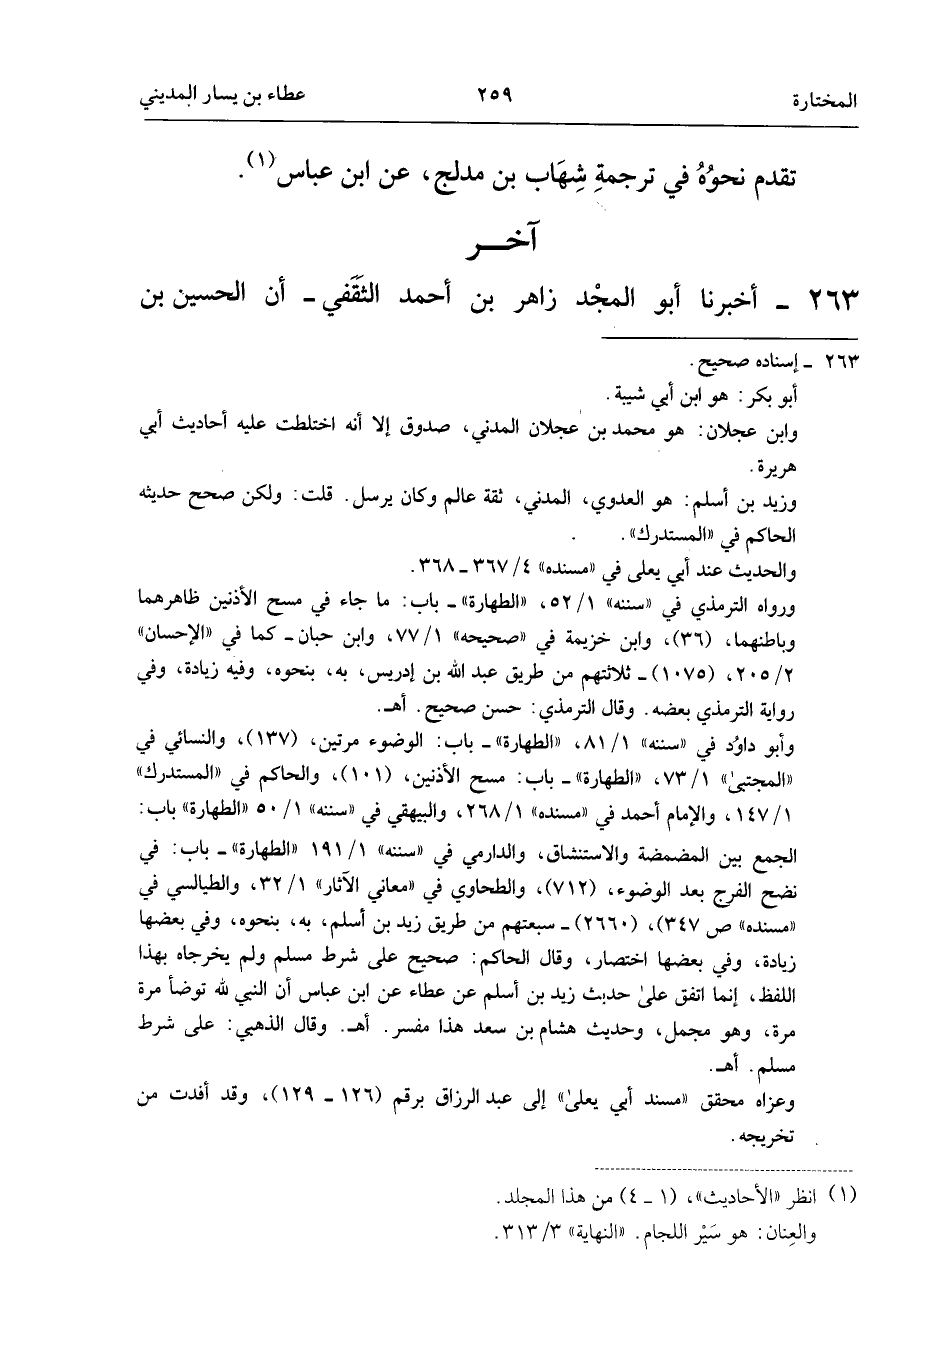 المختارة ٢٥٩ عطاء بن يسار المديني
تقدم نحوُهُ في ترجمةِ شِهَاب بن مدلج، عن ابن عباس(١).
آخـــر
٢٦٣ ـ أخبرنا أبو المجْد زاهر بن أحمد الثَقَفي ـ أن الحسين بن
٢٦٣ ـ إسناده صحيح.
أبو بكر: هو ابن أبي شيبة.
وابن عجلان: هو محمد بن عجلان المدني، صدوق إلا أنه اختلطت عليه أحاديث أبي
هريرة.
وزيد بن أسلم: هو العدوي، المدني، ثقة عالم وكان يرسل. قلت: ولكن صحح حديثه
الحاكم في «المستدرك».
والحديث عند أبي يعلى في «مسنده» ٤/ ٣٦٧ ـ ٣٦٨.
ورواه الترمذي في «سننه» ١/ ٥٢، «الطهارة» ـ باب: ما جاء في مسح الأذنين ظاهرهما
وباطنهما، (٣٦)، وابن خزيمة في «صحيحه» ١/ ٧٧، وابن حبان ـ كما في «الإحسان»
٢/ ٢٠٥، (١٠٧٥) ـ ثلاثتهم من طريق عبد الله بن إدريس، به، بنحوه، وفيه زيادة، وفي
رواية الترمذي بعضه. وقال الترمذي: حسن صحيح. أهـ.
وأبو داوُد في «سننه» ١/ ٨١، «الطهارة» ـ باب: الوضوء مرتين، (١٣٧)، والنسائي في
«المجتبىٰ» ١/ ٧٣، «الطهارة» ـ باب: مسح الأذنين، (١٠١)، والحاكم في «المستدرك»
١/ ١٤٧، والإمام أحمد في «مسنده» ١/ ٢٦٨، والبيهقي في «سننه» ١/ ٥٠ «الطهارة» باب:
الجمع بين المضمضة والاستنشاق، والدارمي في «سننه» ١/ ١٩١ «الطهارة» ـ باب: في
نضح الفرج بعد الوضوء، (٧١٢)، والطحاوي في «معاني الآثار» ١/ ٣٢، والطيالسي في
«مسنده» ص ٣٤٧)، (٢٦٦٠) ـ سبعتهم من طريق زيد بن أسلم، به، بنحوه، وفي بعضها
زيادة، وفي بعضها اختصار، وقال الحاكم: صحيح على شرط مسلم ولم يخرجاه بهذا
اللفظ، إنما اتفق علىٰ حديث زيد بن أسلم عن عطاء عن ابن عباس أن النبي لله توضأ مرة
مرة، وهو مجمل، وحديث هشام بن سعد هذا مفسر. أهـ. وقال الذهبي: على شرط
مسلم. أهـ.
وعزاه محقق «مسند أبي يعلىٰ» إلى عبد الرزاق برقم (١٢٦ ـ ١٢٩)، وقد أفدت من
تخريجه.
(١) انظر «الأحاديث»، (١ ـ ٤) من هذا المجلد.
والعِنان: هو سَيْر اللجام. «النهاية» ٣/ ٣١٣.